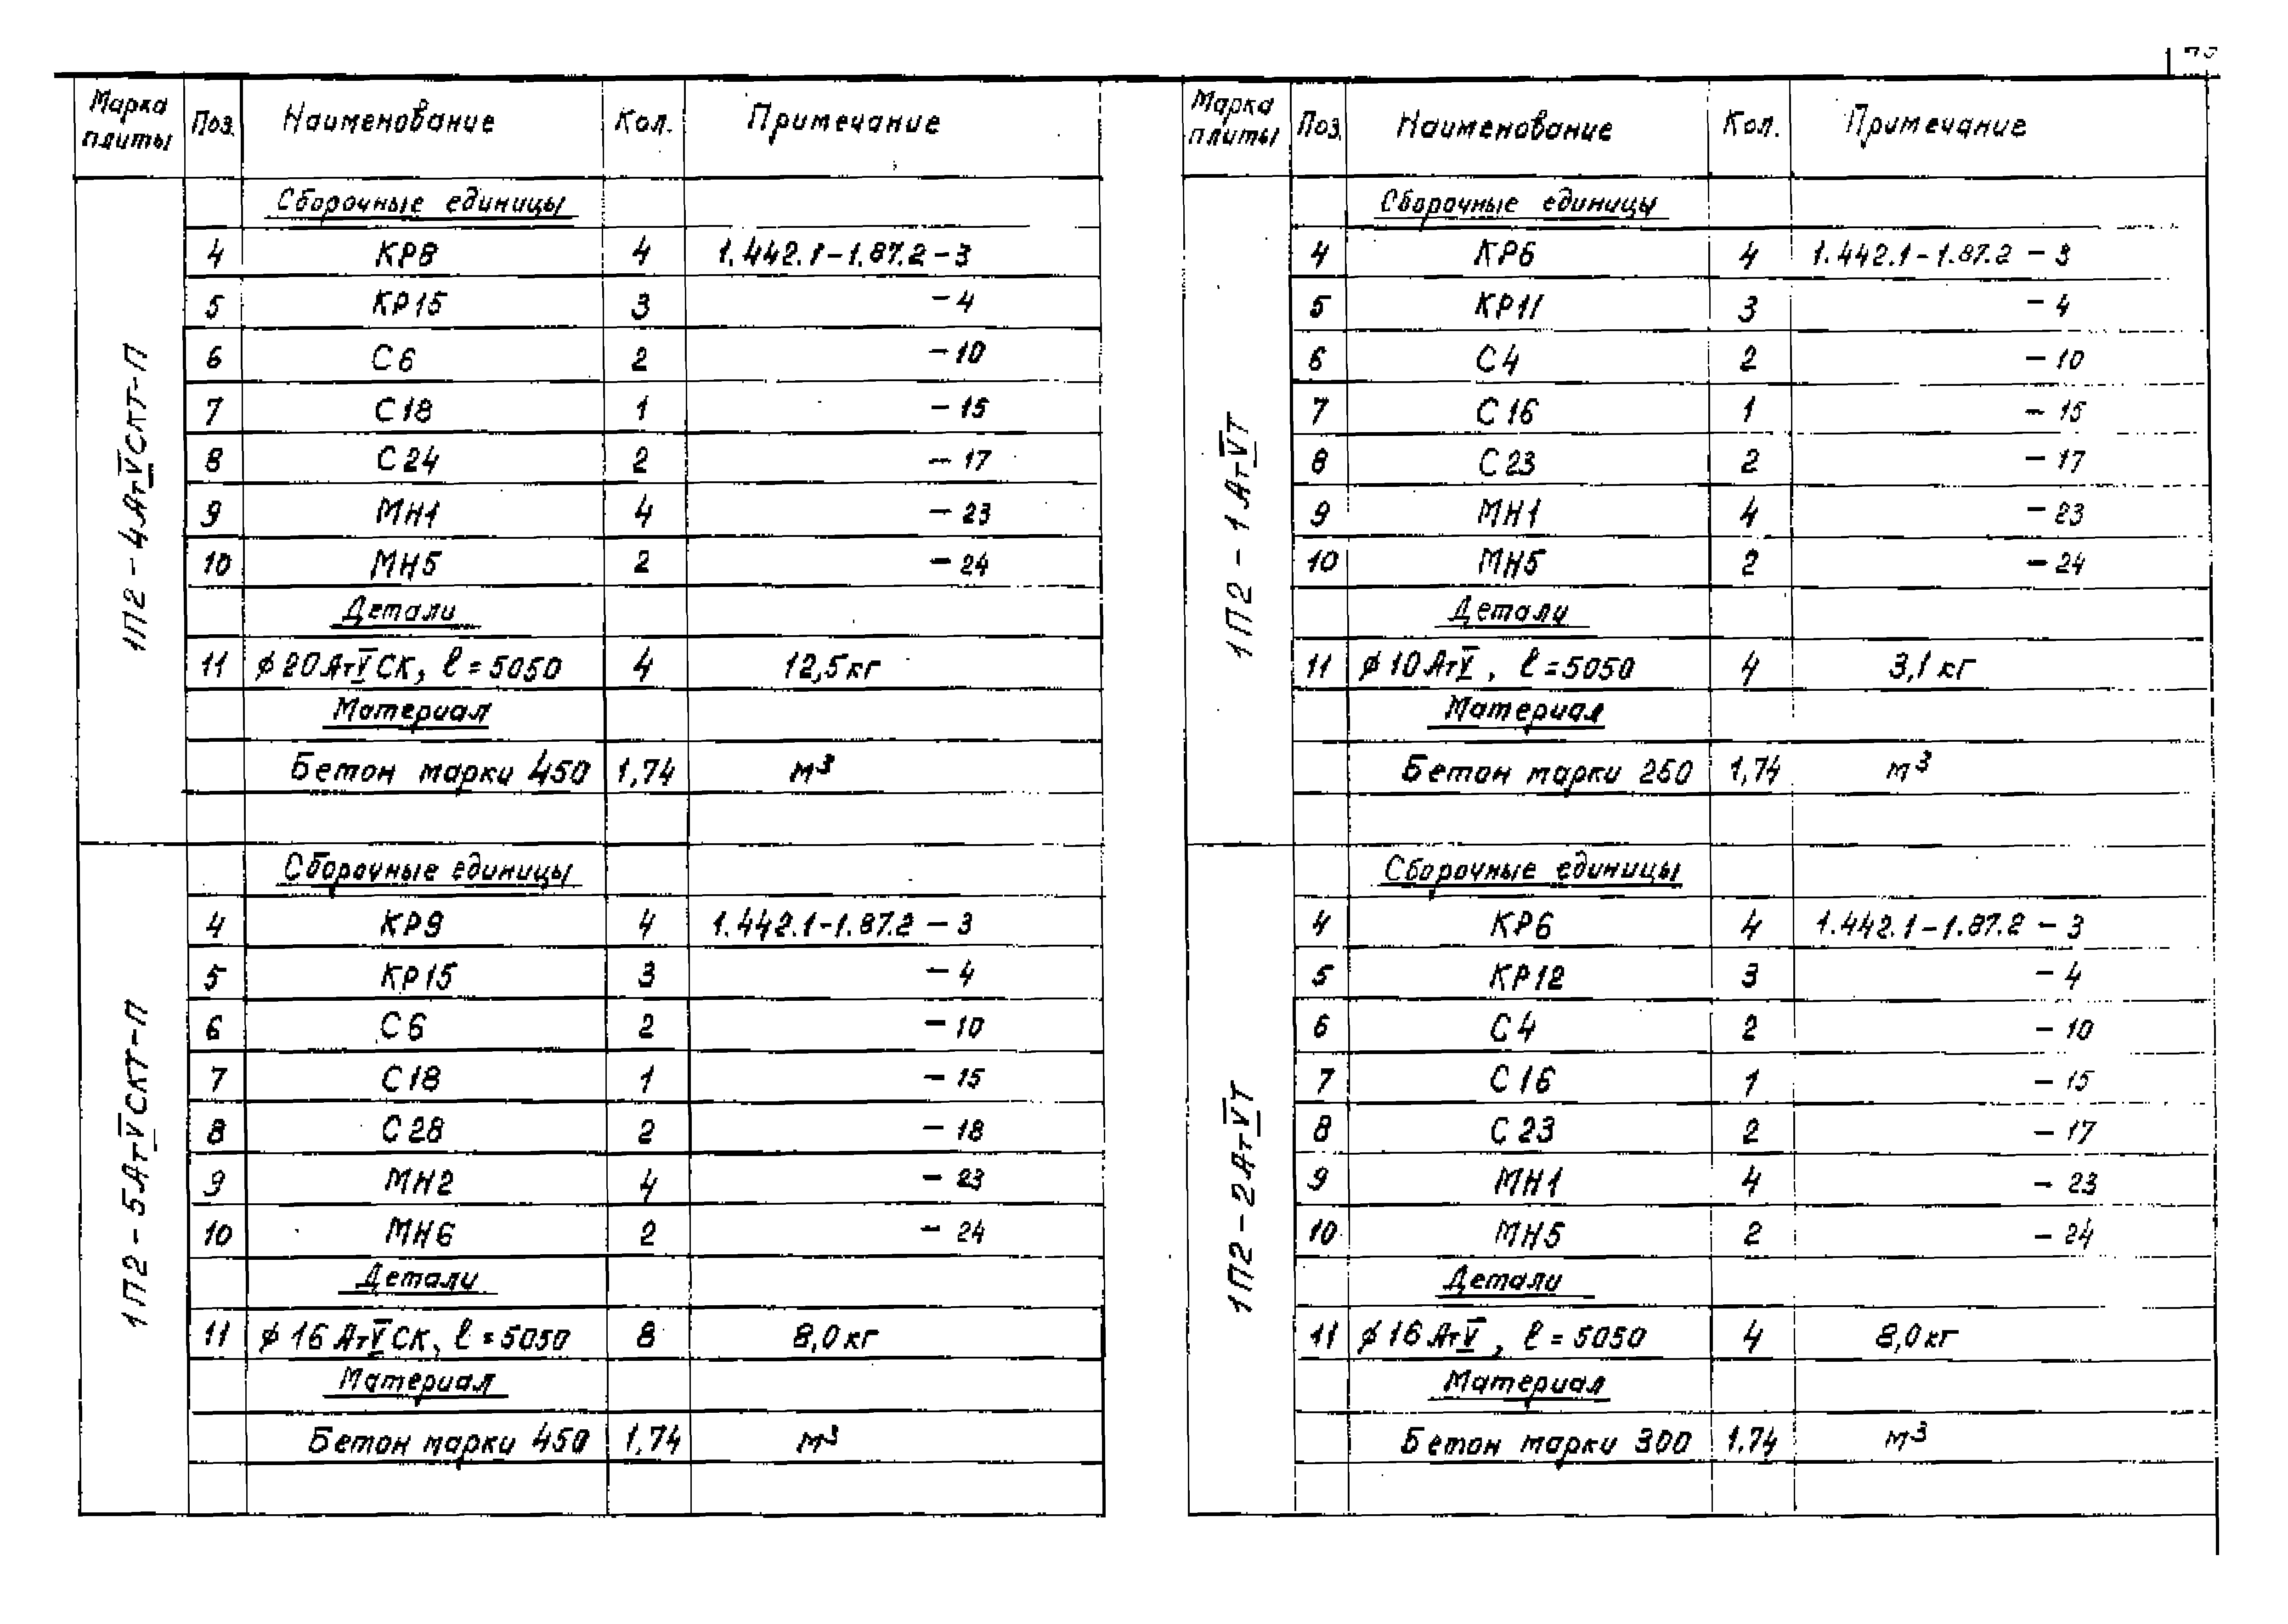 Марка плиты | Поз. | Наименование | Кол. | Примечание
1П2-4АтVСКТ-П
Сборочные единицы
4 | КР8 | 4 | 1.442.1-1.87.2-3
5 | КР15 | 3 | -4
6 | С6 | 2 | -10
7 | С18 | 1 | -15
8 | С24 | 2 | -17
9 | МН1 | 4 | -23
10 | МН5 | 2 | -24
Детали
11 | ϕ20АтVСК, ℓ=5050 | 4 | 12,5кг
Материал
Бетон марки 450 | 1,74 | м³
1П2-5АтVСКТ-П
Сборочные единицы
4 | КР9 | 4 | 1.442.1-1.87.2-3
5 | КР15 | 3 | -4
6 | С6 | 2 | -10
7 | С18 | 1 | -15
8 | С28 | 2 | -18
9 | МН2 | 4 | -23
10 | МН6 | 2 | -24
Детали
11 | ϕ16АтVСК, ℓ=5050 | 8 | 8,0кг
Материал
Бетон марки 450 | 1,74 | м³
Марка плиты | Поз. | Наименование | Кол. | Примечание
1П2-1АтVТ
Сборочные единицы
4 | КР6 | 4 | 1.442.1-1.87.2-3
5 | КР11 | 3 | -4
6 | С4 | 2 | -10
7 | С16 | 1 | -15
8 | С23 | 2 | -17
9 | МН1 | 4 | -23
10 | МН5 | 2 | -24
Детали
11 | ϕ10АтV, ℓ=5050 | 4 | 3,1кг
Материал
Бетон марки 250 | 1,74 | м³
1П2-2АтVТ
Сборочные единицы
4 | КР6 | 4 | 1.442.1-1.87.2-3
5 | КР12 | 3 | -4
6 | С4 | 2 | -10
7 | С16 | 1 | -15
8 | С23 | 2 | -17
9 | МН1 | 4 | -23
10 | МН5 | 2 | -24
Детали
11 | ϕ16АтV, ℓ=5050 | 4 | 8,0кг
Материал
Бетон марки 300 | 1,74 | м³